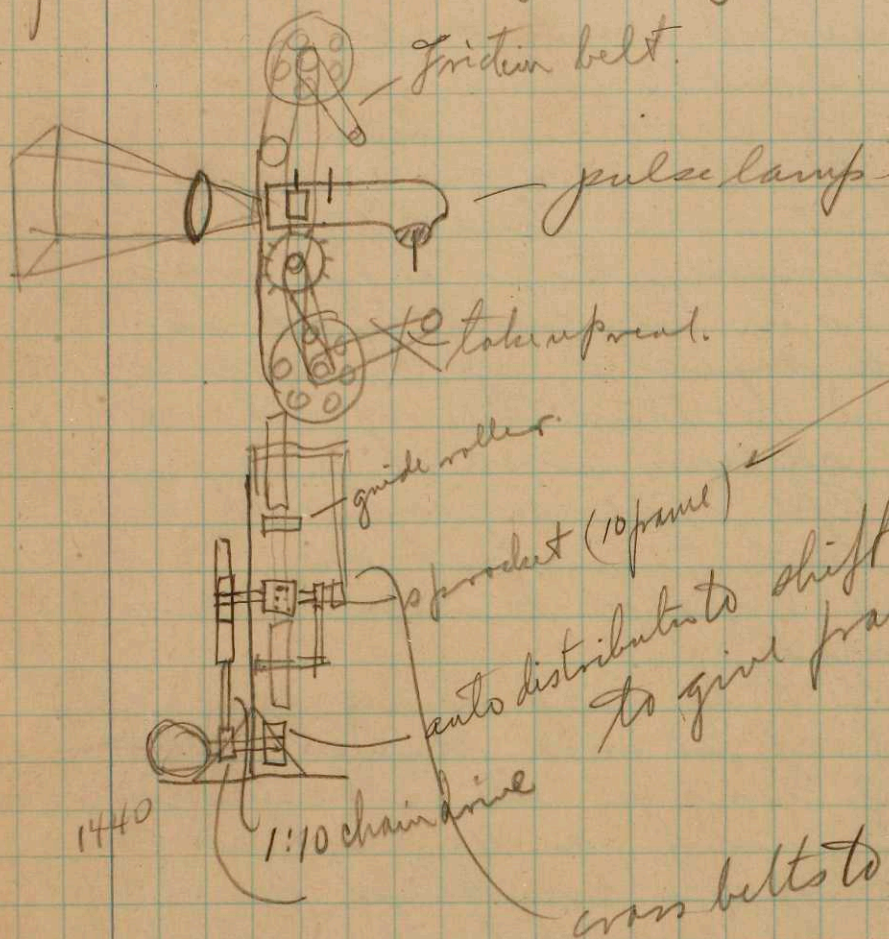 Friction belt.
pulse lamp
take up real.
guide roller.
sprocket (10 frame)
auto distributor to shift
to give fra
1440
1:10 chain drive
cross belts to